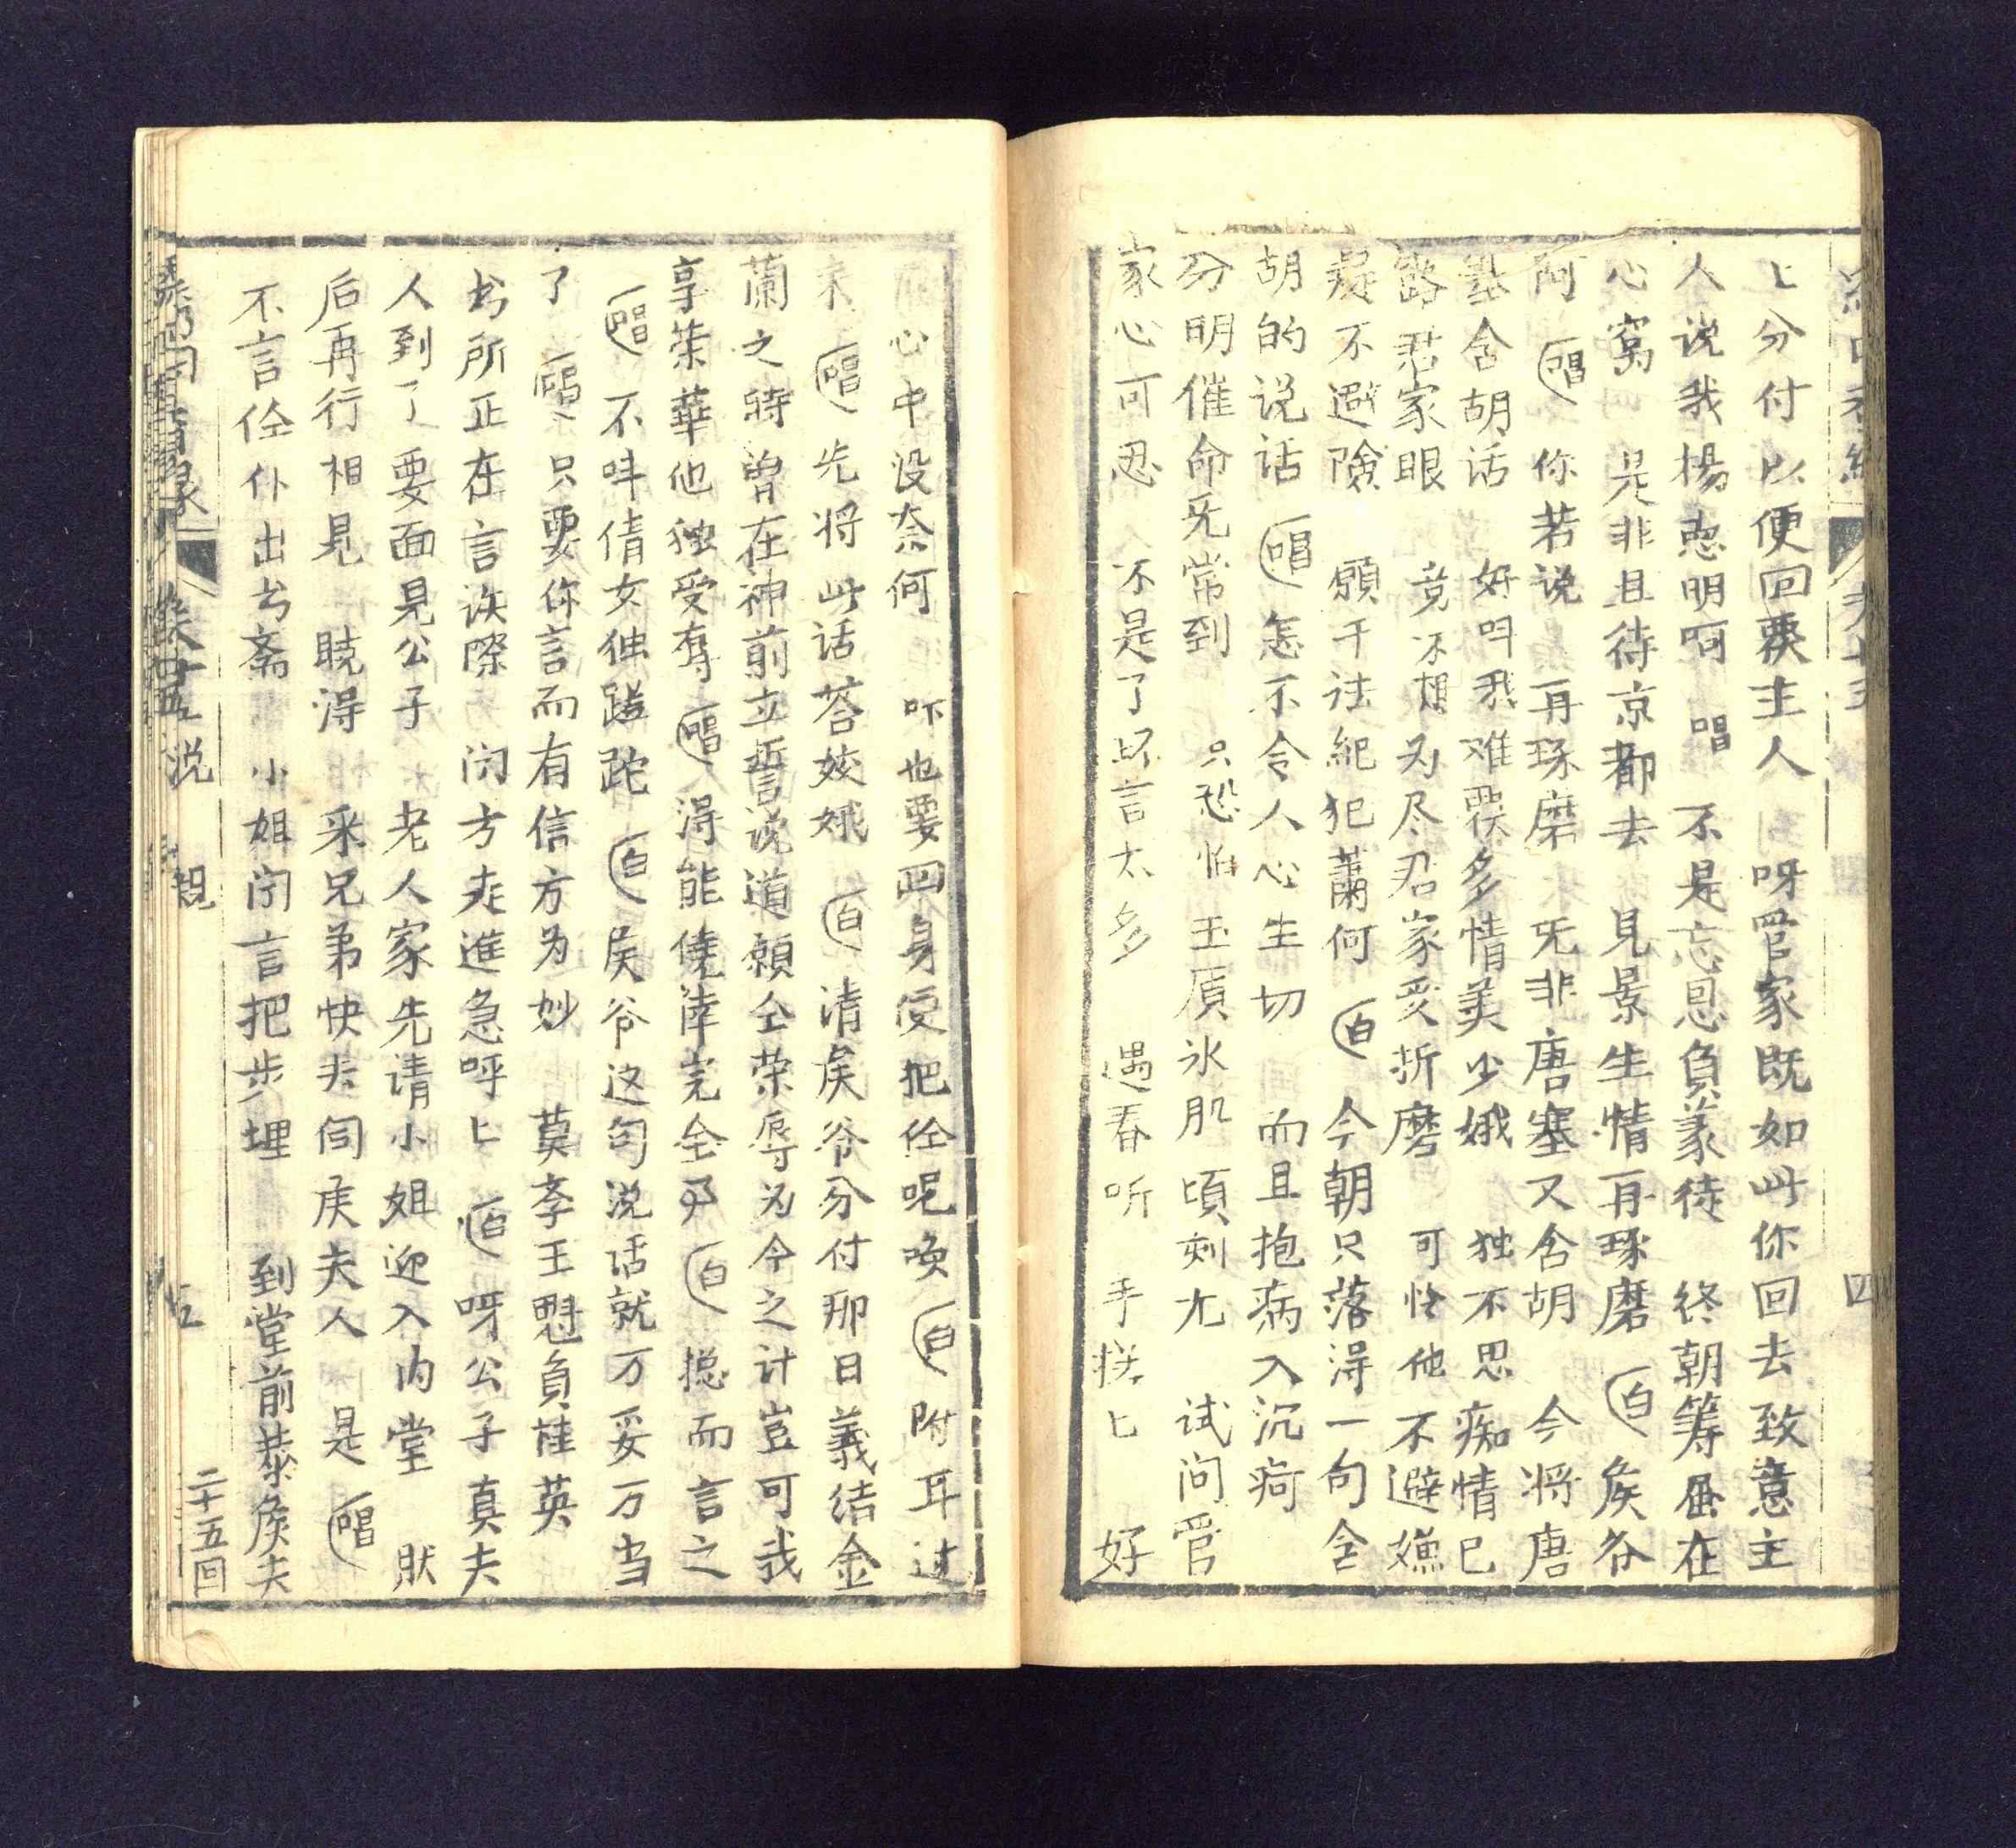 匕分付以便回覆主人 呀管家既如此你回去致意主
人说我楊惠明呵 唱 不是忘恩負義徒 終朝筹蚤在
心窩 是非且待京都去 見景生情再琢磨 白 侯爷
阿 唱 你若说再琢磨 旡非唐塞又含胡 今将唐
塞含胡话 好呌我难覆多情美少娥 独不思痴情已
路君家眼 竟不想为尽君家受折磨 可怜他不避嫌
疑不避險 願干法紀犯蕭何 白 今朝只落淂一句含
胡的说话 唱 怎不令人心生切 而且抱病入沉疴
分明催命旡常到 只恐怕玉质氷肌頃刻尢 试问管
家心可忍 不是了环言太多 遇春听 手搓匕 好
心中没奈何 吓也要回身受把佺呢唤 白 附耳过
来 唱 先将此话荅姣娥 白 清矦爷分付那日義结金
蘭之時曽在神前立誓说道願仝荣辱为今之计豈可我
享荣華他独受辱 唱 淂能僥倖完全 白 捴而言之
唱 不呌倩女独蹉跎 白 矦爷这句说话就万妥万当
了 唱 只要你言而有信方为妙 莫李王魁負桂英
书所正在言谈際 门方走進急呼匕 白 呀公子真夫
人到了要面見公子 老人家先请小姐迎入内堂 然
后再行相見 晓淂 采兄弟快去伺矦夫人 是 唱
不言佺仆出书斋 小姐闻言把步埋 到堂前恭矦夫
卷廿五 说 親
五
二十五回
四